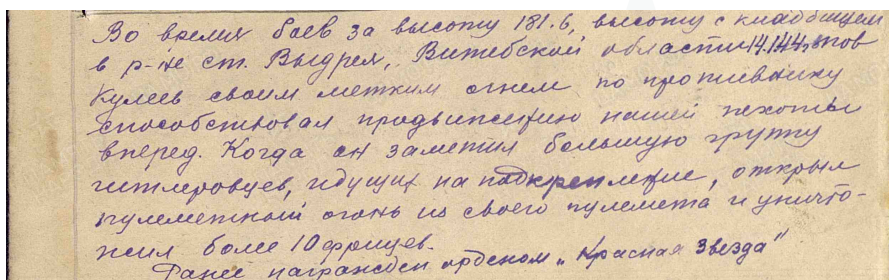 Во время боев за высоту 181.6, высоту с кладбищем
в р-не ст. Выдрея, Витебской области 14.1.44г. тов
Кулеев своим метким огнем по противнику
способствовал продвижению нашей пехоты
вперед. Когда он заметил большую группу
гитлеровцев, идущих на подкрепление, открыл
пулеметный огонь из своего пулемета и уничто-
жил более 10 фрицев.
Ранее награжден орденом „Красная Звезда"